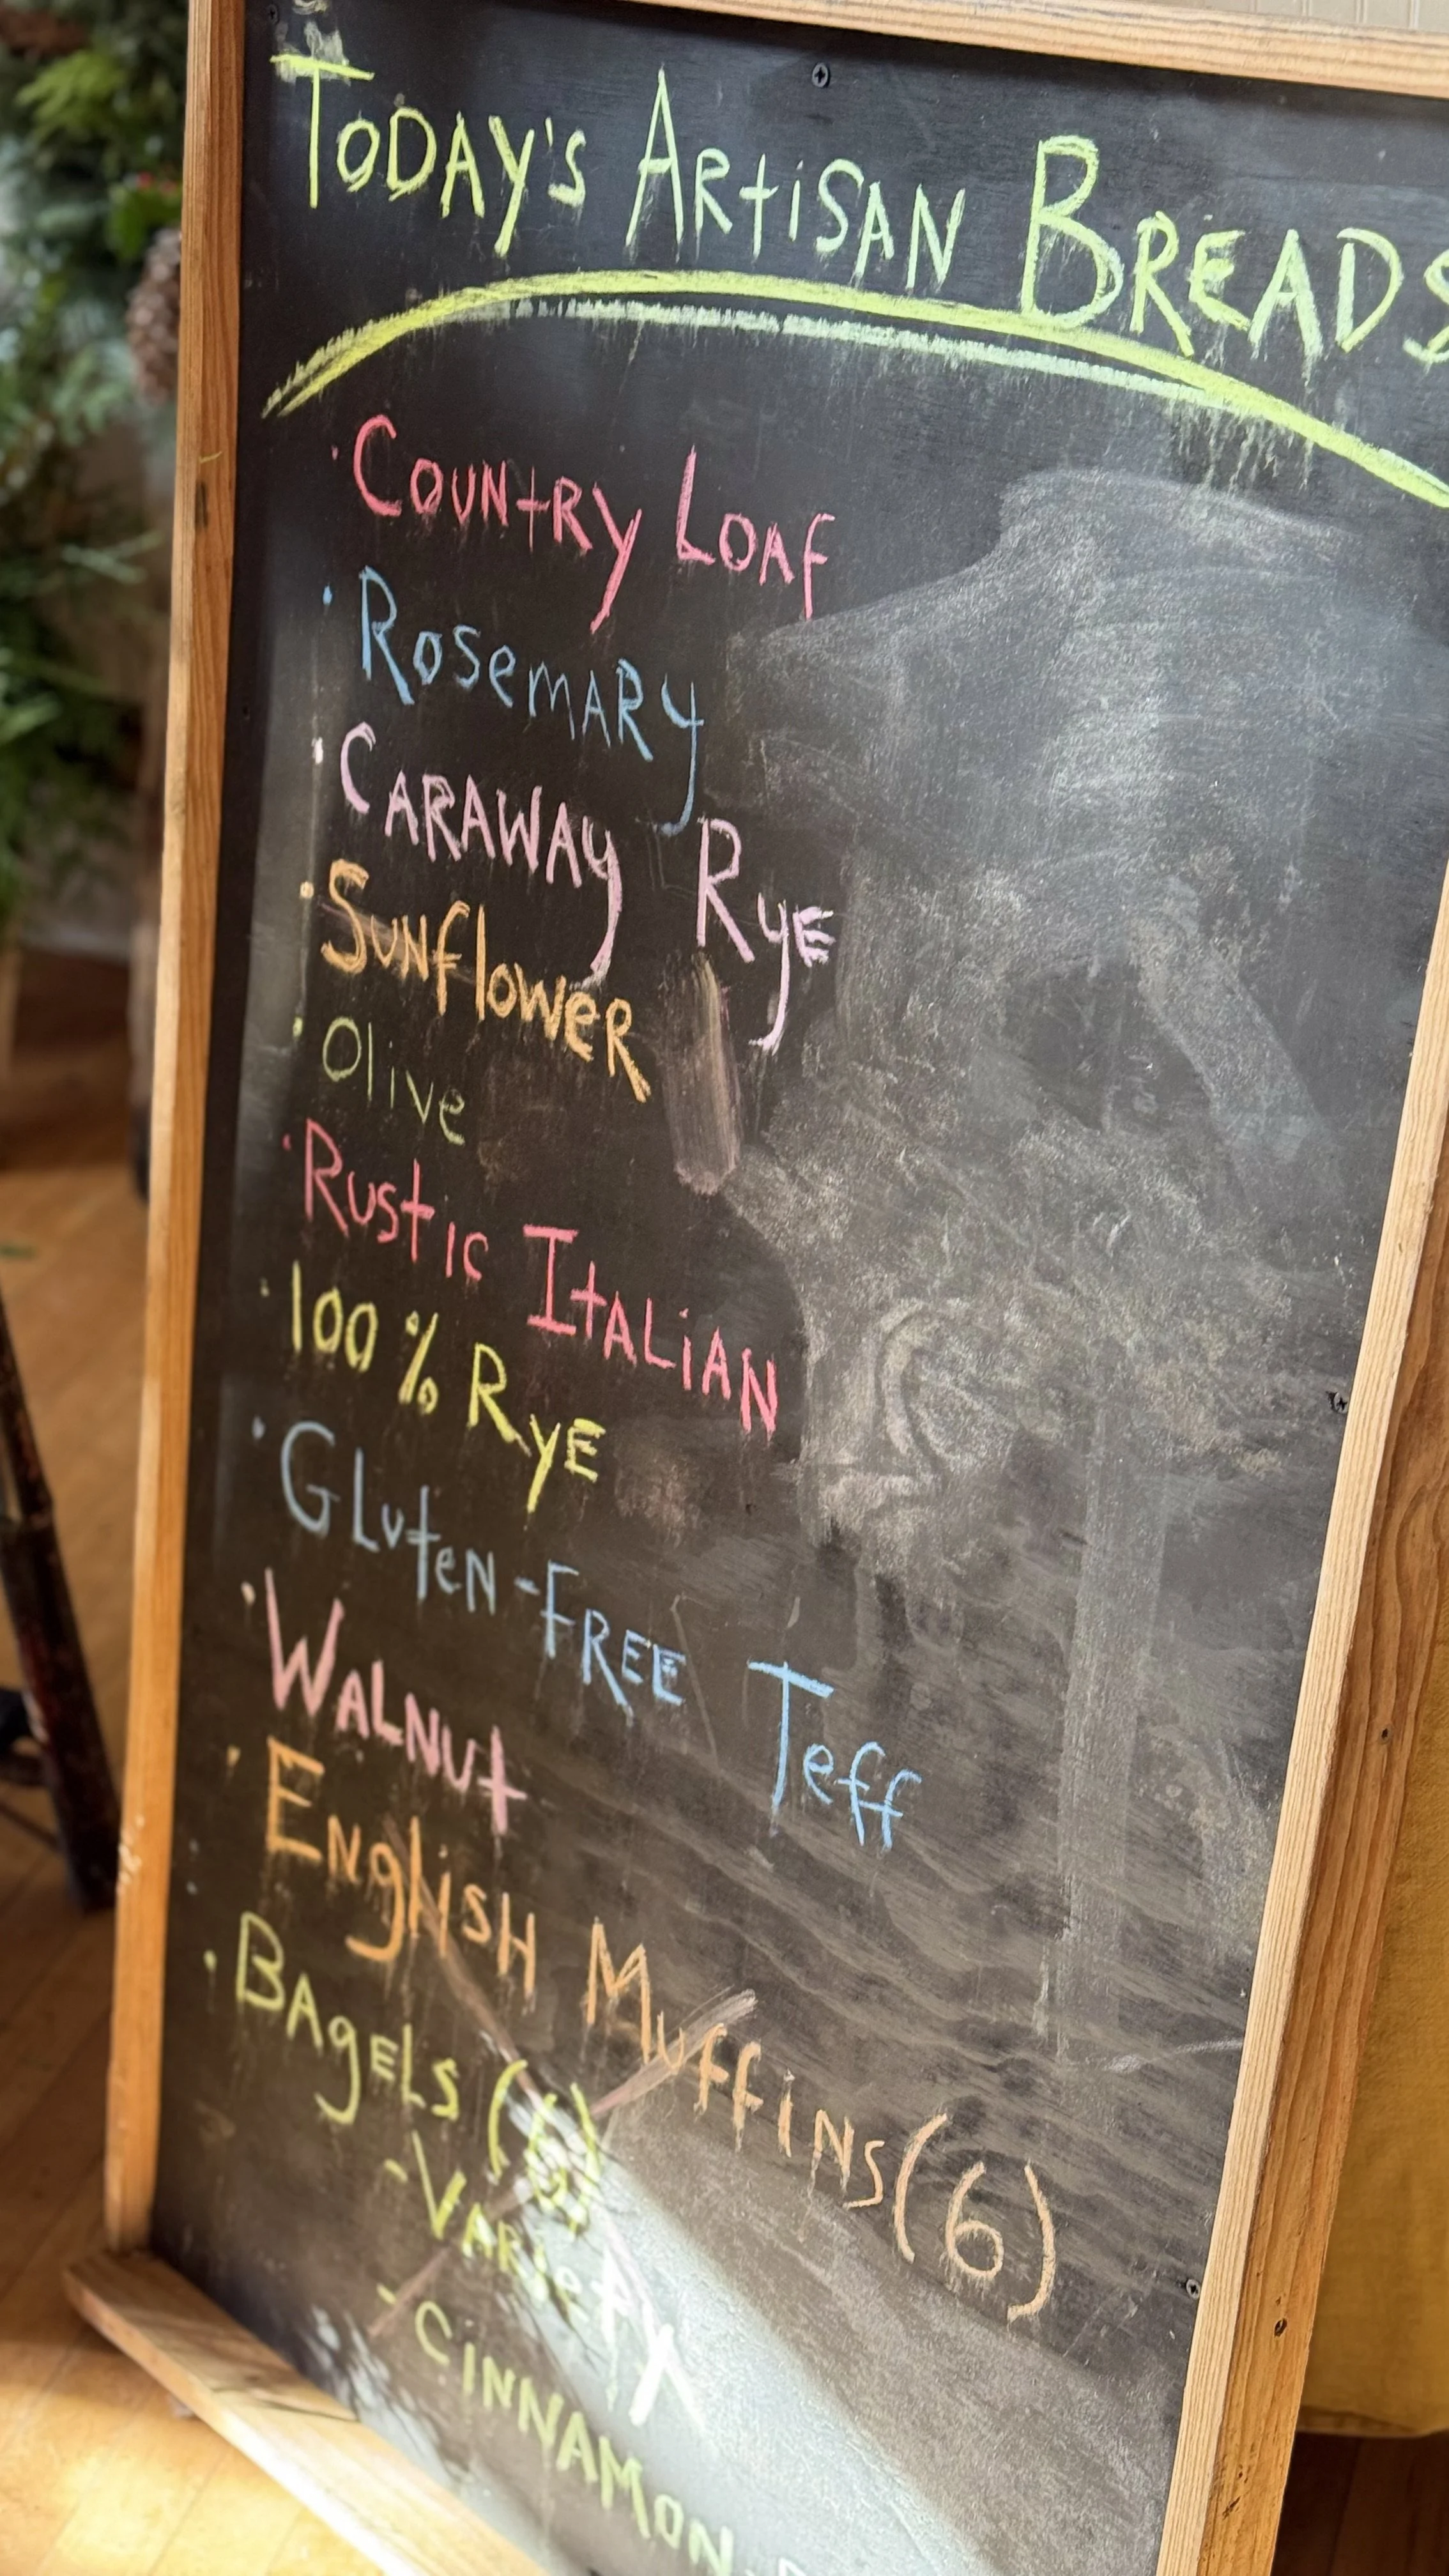 Today's Artisan Breads
· Country Loaf
· Rosemary
· Caraway Rye
· Sunflower
· Olive
· Rustic Italian
· 100% Rye
· Gluten-Free Teff
· Walnut
· English Muffins (6)
· Bagels (6)
- Variety
- Cinnamon